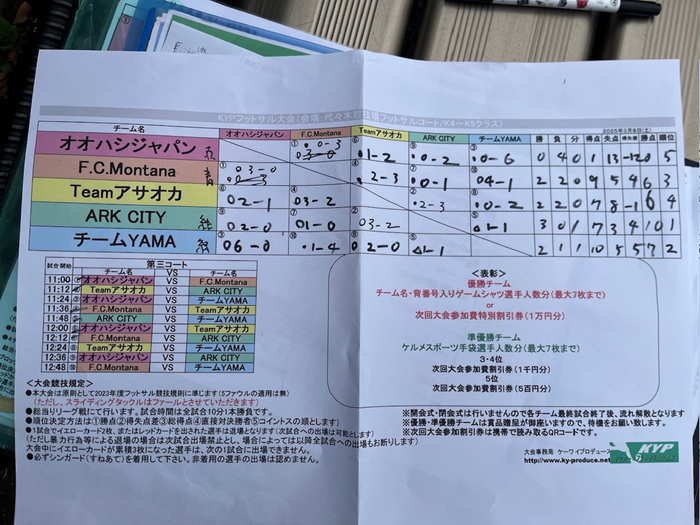 KYPフットサル大会(会場:代々木競技場フットサルコート/K4〜K5クラス)
2025年3月8日(土)
チーム名 オオハシジャパン F.C.Montana Teamアサオカ ARK CITY チームYAMA 勝 負 分 得点 失点 得失差 勝点 順位
オオハシジャパン ① 0-3 ⑥ 1-2 ⑨ 0-2 ③ 0-6 0 4 0 1 13 -12 0 5
F.C.Montana ① 3-0 ④ 2-3 ⑦ 0-1 ⑩ 4-1 2 2 0 9 5 4 6 3
Teamアサオカ ⑥ 2-1 ④ 3-2 ② 2-3 ⑧ 0-2 2 2 0 7 8 -1 6 4
ARK CITY ⑨ 2-0 ⑦ 1-0 ② 3-2 ⑤ 1-1 3 0 1 7 3 4 10 1
チームYAMA ③ 6-0 ⑩ 1-4 ⑧ 2-0 ⑤ 1-1 2 1 1 10 5 5 7 2
試合開始 第三コート
チーム名 VS チーム名
11:00 ① オオハシジャパン VS F.C.Montana
11:12 ② Teamアサオカ VS ARK CITY
11:24 ③ オオハシジャパン VS チームYAMA
11:36 ④ F.C.Montana VS Teamアサオカ
11:48 ⑤ ARK CITY VS チームYAMA
12:00 ⑥ オオハシジャパン VS Teamアサオカ
12:12 ⑦ F.C.Montana VS ARK CITY
12:24 ⑧ Teamアサオカ VS チームYAMA
12:36 ⑨ オオハシジャパン VS ARK CITY
12:48 ⑩ F.C.Montana VS チームYAMA
<表彰>
優勝チーム
チーム名・背番号入りゲームシャツ選手人数分(最大7枚まで)
or
次回大会参加費特別割引券(1万円分)
準優勝チーム
ケルメスポーツ手袋選手人数分(最大7枚まで)
3・4位
次回大会参加費割引券(1千円分)
5位
次回大会参加費割引券(5百円分)
<大会競技規定>
●本大会は原則として2023年度フットサル競技規則に準じます(5ファウルの適用は無)
(ただし、スライディングタックルはファールとさせていただきます)
●総当りリーグ戦にて行います。試合時間は全試合10分1本勝負です。
●順位決定方法は①勝点②得失点差③総得点④直接対決勝者⑤コイントスの順とします)
●1試合でイエローカード2枚、またはレッドカードを出された選手は退場となります(次試合への出場は可能とします)
(ただし暴力行為等による退場の場合は次大会出場禁止とし、場合によっては以降全試合への出場もお断りします)
大会中にイエローカードが累積3枚になった選手は、次の1試合に出場できません。
●必ずシンガード(すねあて)を着用して下さい。非着用の選手の出場は認めません。
※開会式・閉会式は行いませんので各チーム最終試合終了後、流れ解散となります
※優勝・準優勝チームは賞品贈呈が御座いますので、待機をお願い致します。
※次回大会参加割引券は携帯で読み取るQRコードです。
大会事務局 ケーワイプロデュース
http://www.ky-produce.net
KYP